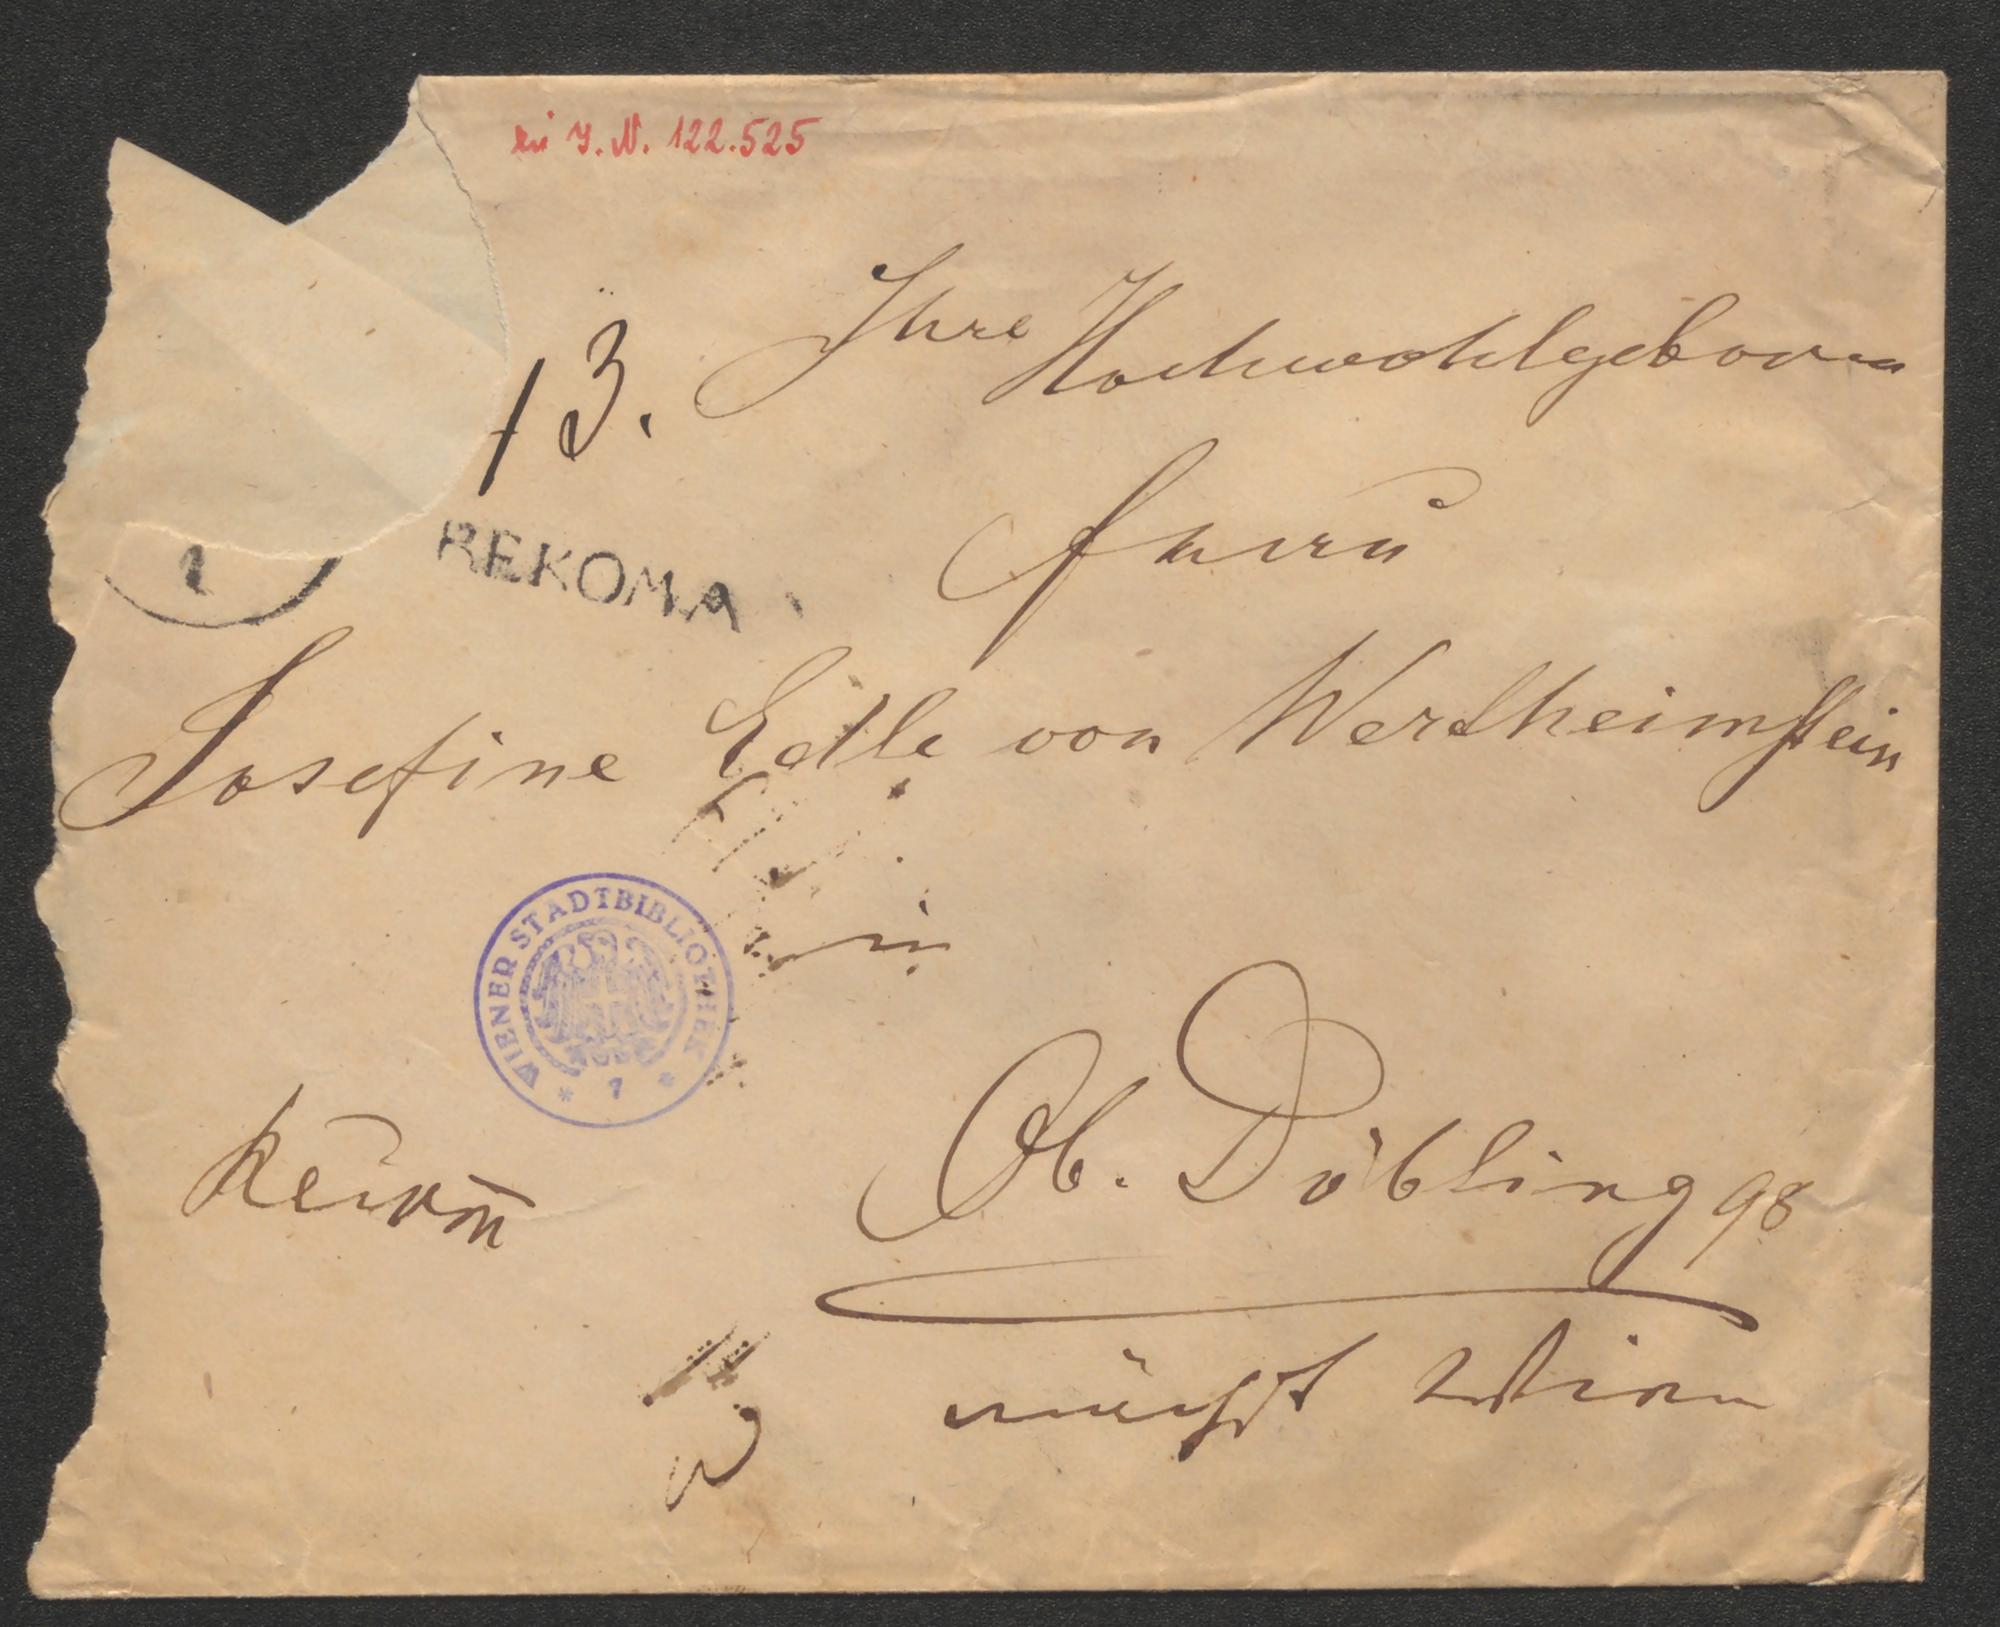 zu I. N. 122.525
13.
Ihre Hochwohlgeboren
Frau
REKOMA
1
Josefine Edle von Wertheimstein
WIENER STADTBIBLIOTHEK * 7 *
in
Ob. Döbling 98
nächst Wien